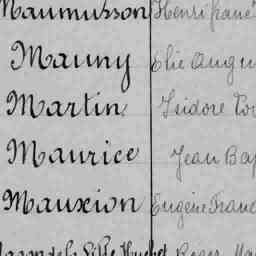 Maumusson Henri
Mauny Elie Augu
Martin Isidore
Maurice Jean Bap
Mauxion Eugène Franc